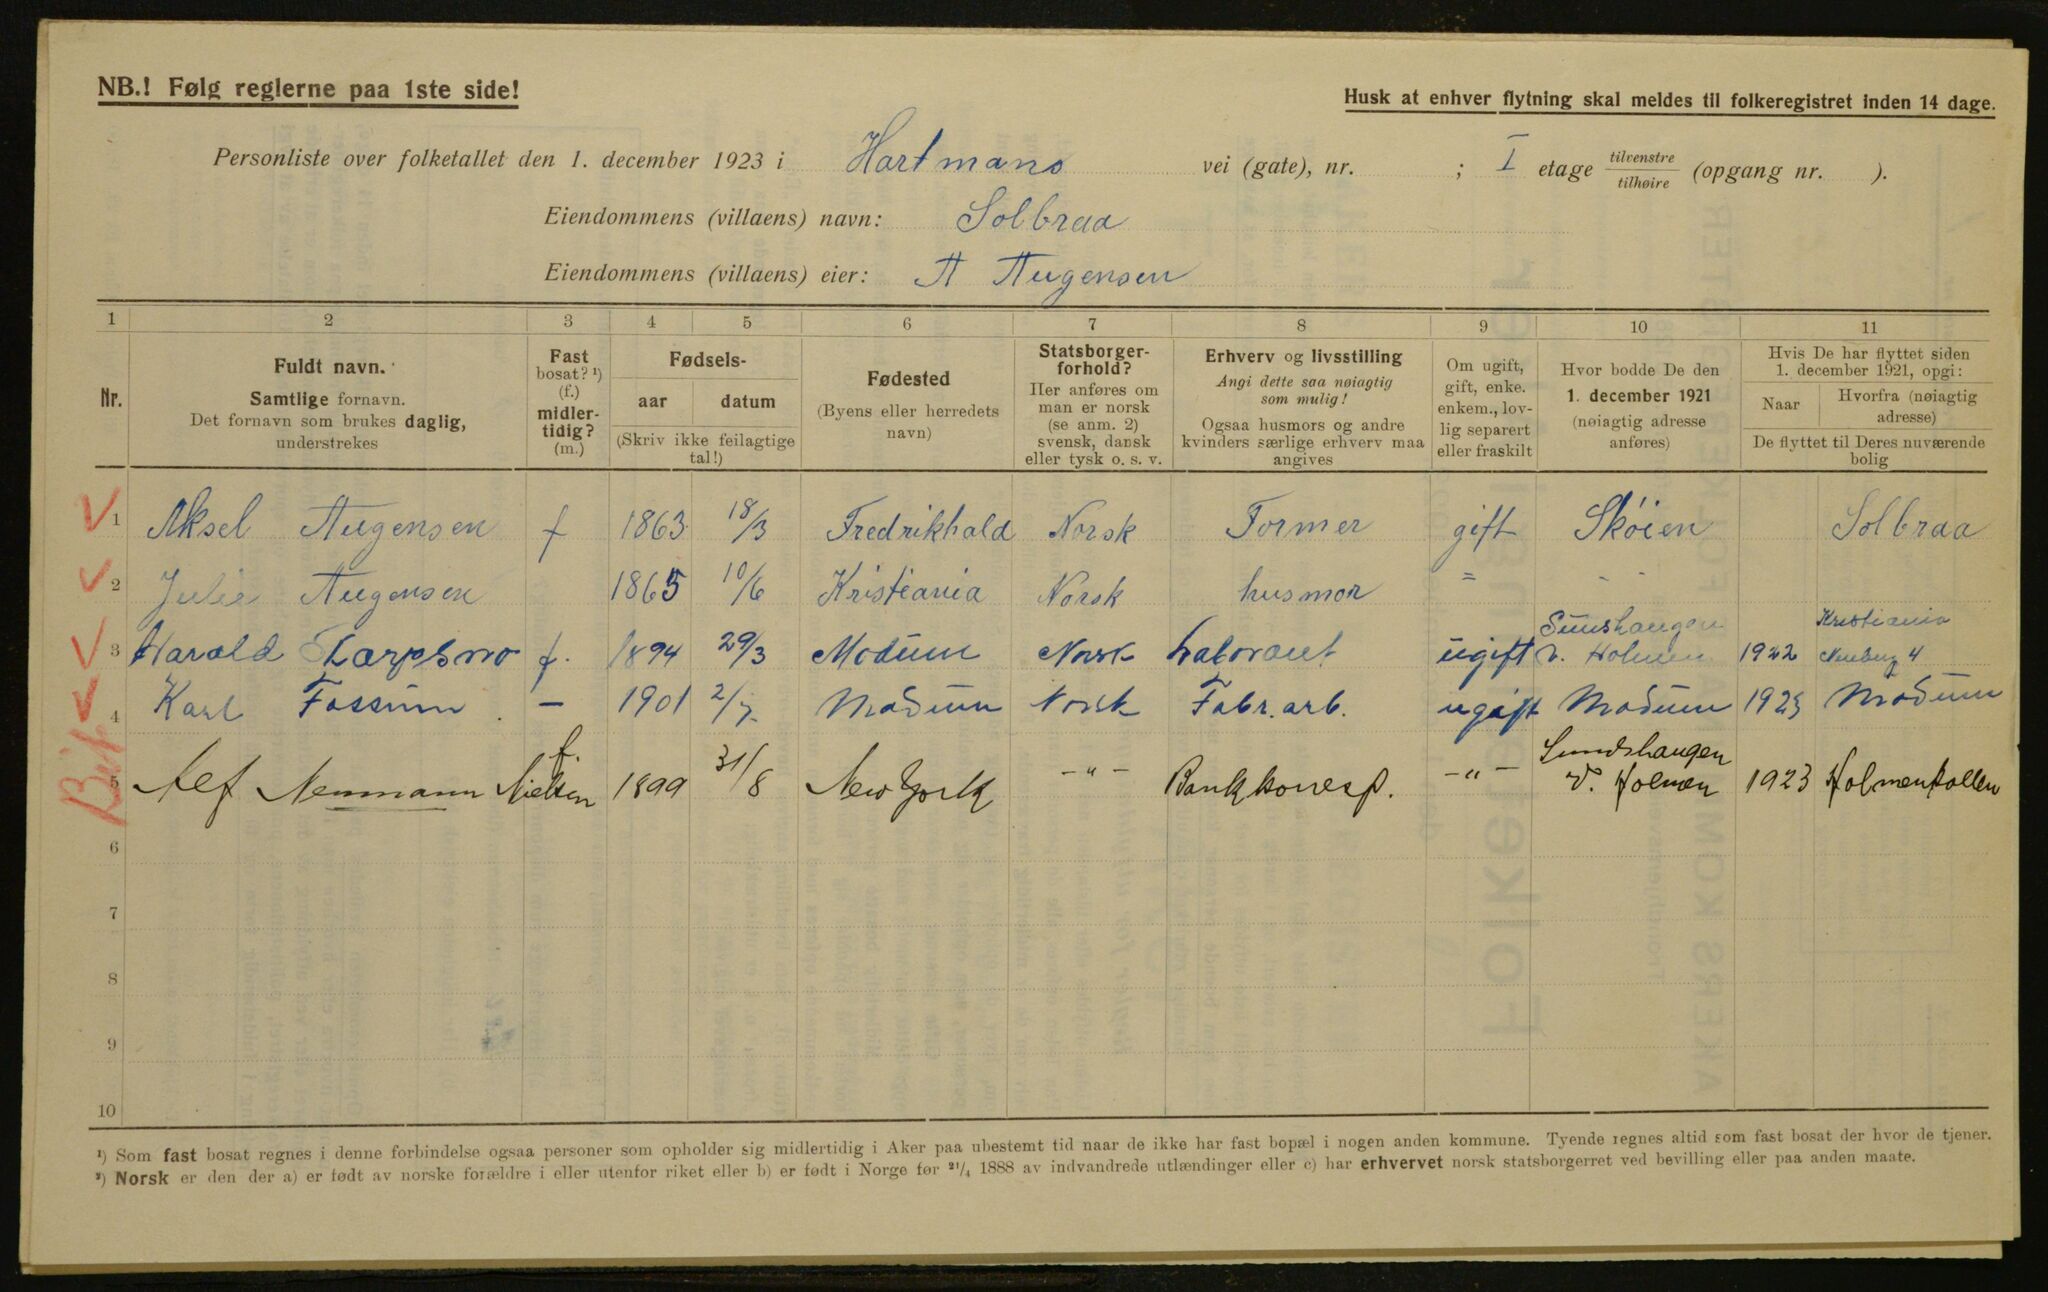 NB.! Følg reglerne paa 1ste side!
Husk at enhver flytning skal meldes til folkeregistret inden 14 dage.
Personliste over folketallet den 1. december 1923 i Hartmans vei (gate), nr. ; I etage tilvenstre/tilhøire (opgang nr. ).
Eiendommens (villaens) navn: Solbraa
Eiendommens (villaens) eier: A Augensen
1 2 3 4 5 6 7 8 9 10 11
Nr.
Fuldt navn.
Samtlige fornavn.
Det fornavn som brukes daglig,
understrekes
Fast
bosat? ¹)
(f.)
midler-
tidig?
(m.)
Fødsels-
aar datum
(Skriv ikke feilagtige
tal!)
Fødested
(Byens eller herredets
navn)
Statsborger-
forhold?
Her anføres om
man er norsk
(se anm. 2)
svensk, dansk
eller tysk o. s. v.
Erhverv og livsstilling
Angi dette saa nøiagtig
som mulig!
Ogsaa husmors og andre
kvinders særlige erhverv maa
angives
Om ugift,
gift, enke.
enkem., lov-
lig separert
eller fraskilt
Hvor bodde De den
1. december 1921
(nøiagtig adresse
anføres)
Hvis De har flyttet siden
1. december 1921, opgi:
Naar Hvorfra (nøiagtig
adresse)
De flyttet til Deres nuværende
bolig
1 Aksel Augensen f 1863 18/3 Fredrikhald Norsk Former gift Skøien Solbraa
2 Julie Augensen 1865 10/6 Kristiania Norsk husmor " " "
3 Harald f. 1894 29/3 Modum Norsk Laborant ugift v. Holmen 1922 Kristiania 4
4 Karl Fossum – 1901 2/7 Modum Norsk Fabr. arb. ugift Modum 1923 Modum
5 Alf Neumann Nielsen f. 1899 31/8 New York –"– Bankkorresp. –"– Sundshaugen
v. Holmen 1923 Holmenkollen
6
7
8
9
10
¹) Som fast bosat regnes i denne forbindelse ogsaa personer som opholder sig midlertidig i Aker paa ubestemt tid naar de ikke har fast bopæl i nogen anden kommune. Tyende regnes altid som fast bosat der hvor de tjener.
²) Norsk er den der a) er født av norske forældre i eller utenfor riket eller b) er født i Norge før ²¹/₄ 1888 av indvandrede utlændinger eller c) har erhvervet norsk statsborgerret ved bevilling eller paa anden maate.